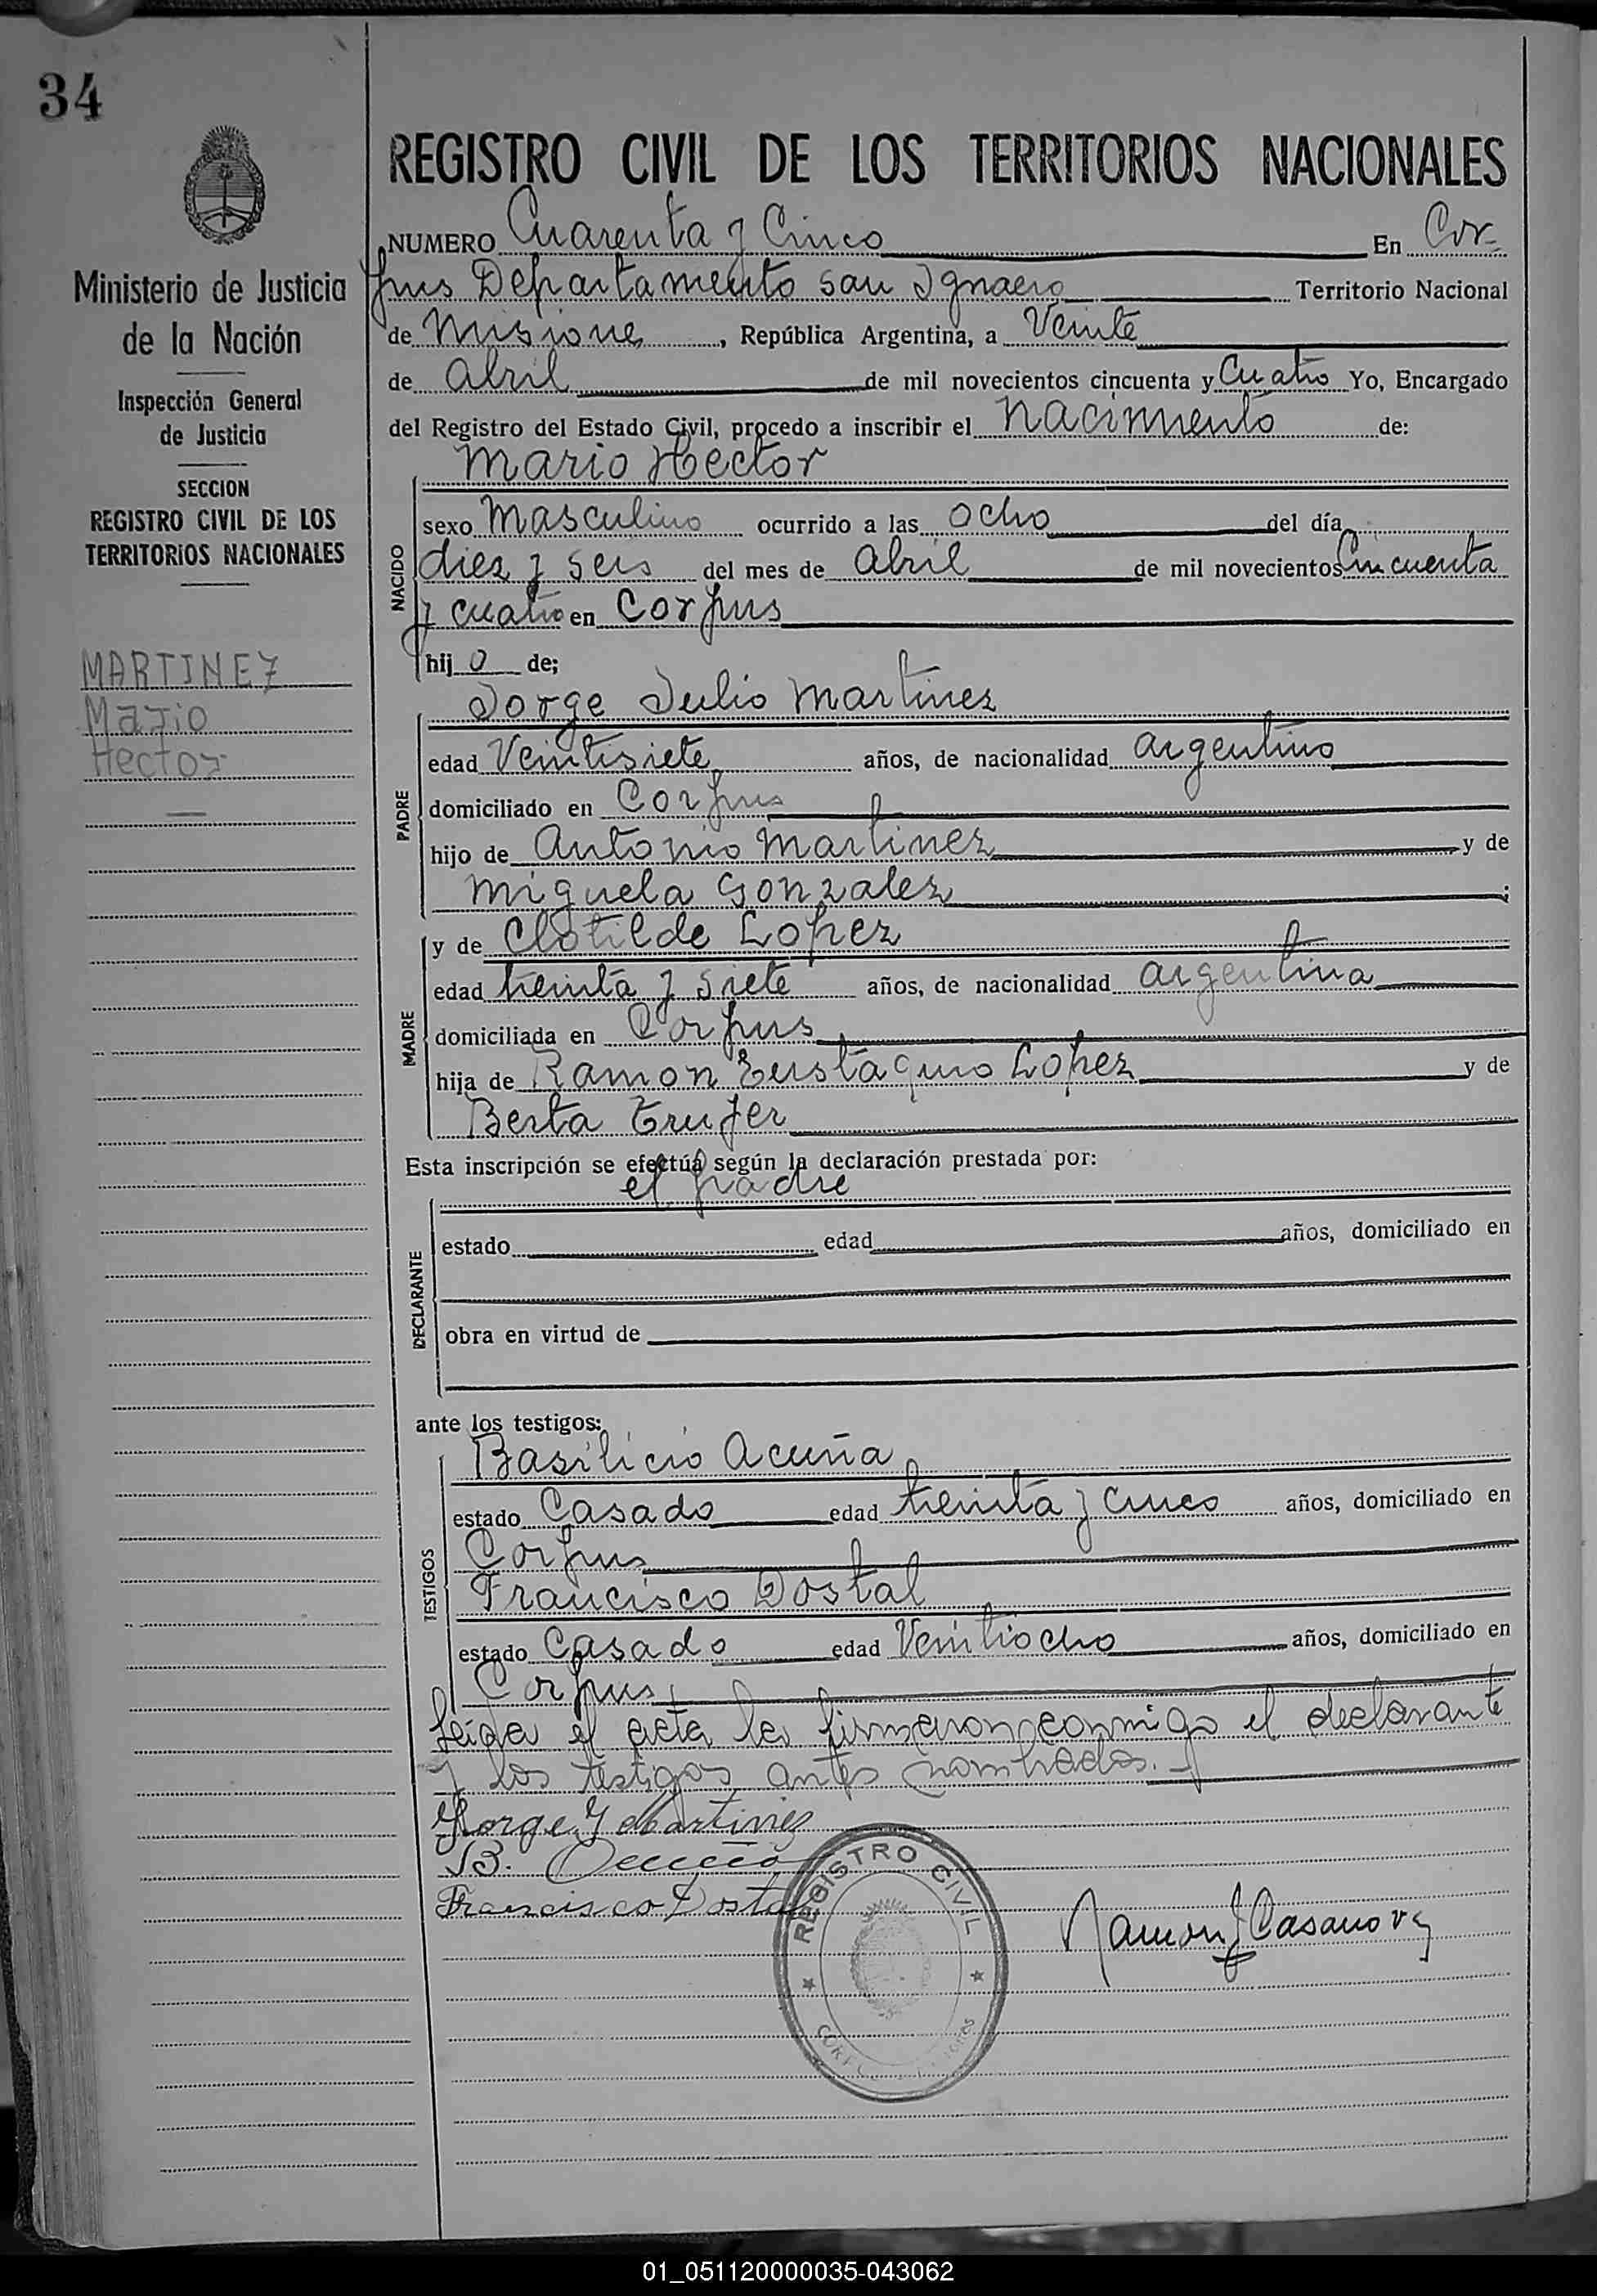 34
Ministerio de Justicia
de la Nación
Inspección General
de Justicia
SECCION
REGISTRO CIVIL DE LOS
TERRITORIOS NACIONALES
MARTINEZ
Mario
Hector
REGISTRO CIVIL DE LOS TERRITORIOS NACIONALES
NUMERO Cuarenta y Cinco En Cor=
pus Departamento San Ignacio Territorio Nacional
de Misiones, República Argentina, a Veinte
de Abril de mil novecientos cincuenta y Cuatro Yo, Encargado
del Registro del Estado Civil, procedo a inscribir el nacimiento de:
Mario Hector
NACIDO
sexo Masculino ocurrido a las Ocho del día
diez y seis del mes de abril de mil novecientos Cincuenta
y cuatro en Corpus
hij o de;
Jorge Julio Martinez
PADRE
edad Veintisiete años, de nacionalidad argentino
domiciliado en Corpus
hijo de Antonio Martinez y de
Miguela Gonzalez ;
MADRE
y de Clotilde Lopez
edad treinta y siete años, de nacionalidad argentina
domiciliada en Corpus
hija de Ramon Eustaquio Lopez y de
Berta
Esta inscripción se efectúa según la declaración prestada por:
el padre
DECLARANTE
estado edad años, domiciliado en
obra en virtud de
ante los testigos:
TESTIGOS
Basilicio Acuña
estado Casado edad treinta y cinco años, domiciliado en
Corpus
Francisco Dostal
estado Casado edad Veintiocho años, domiciliado en
Corpus
Leida el acta la firmaron conmigo el declarante
y los testigos antes nombrados.-
Jorge J Martinez
B. Acuña
Francisco Dostal
REGISTRO CIVIL
Ramon J Casanova
01_051120000035-043062